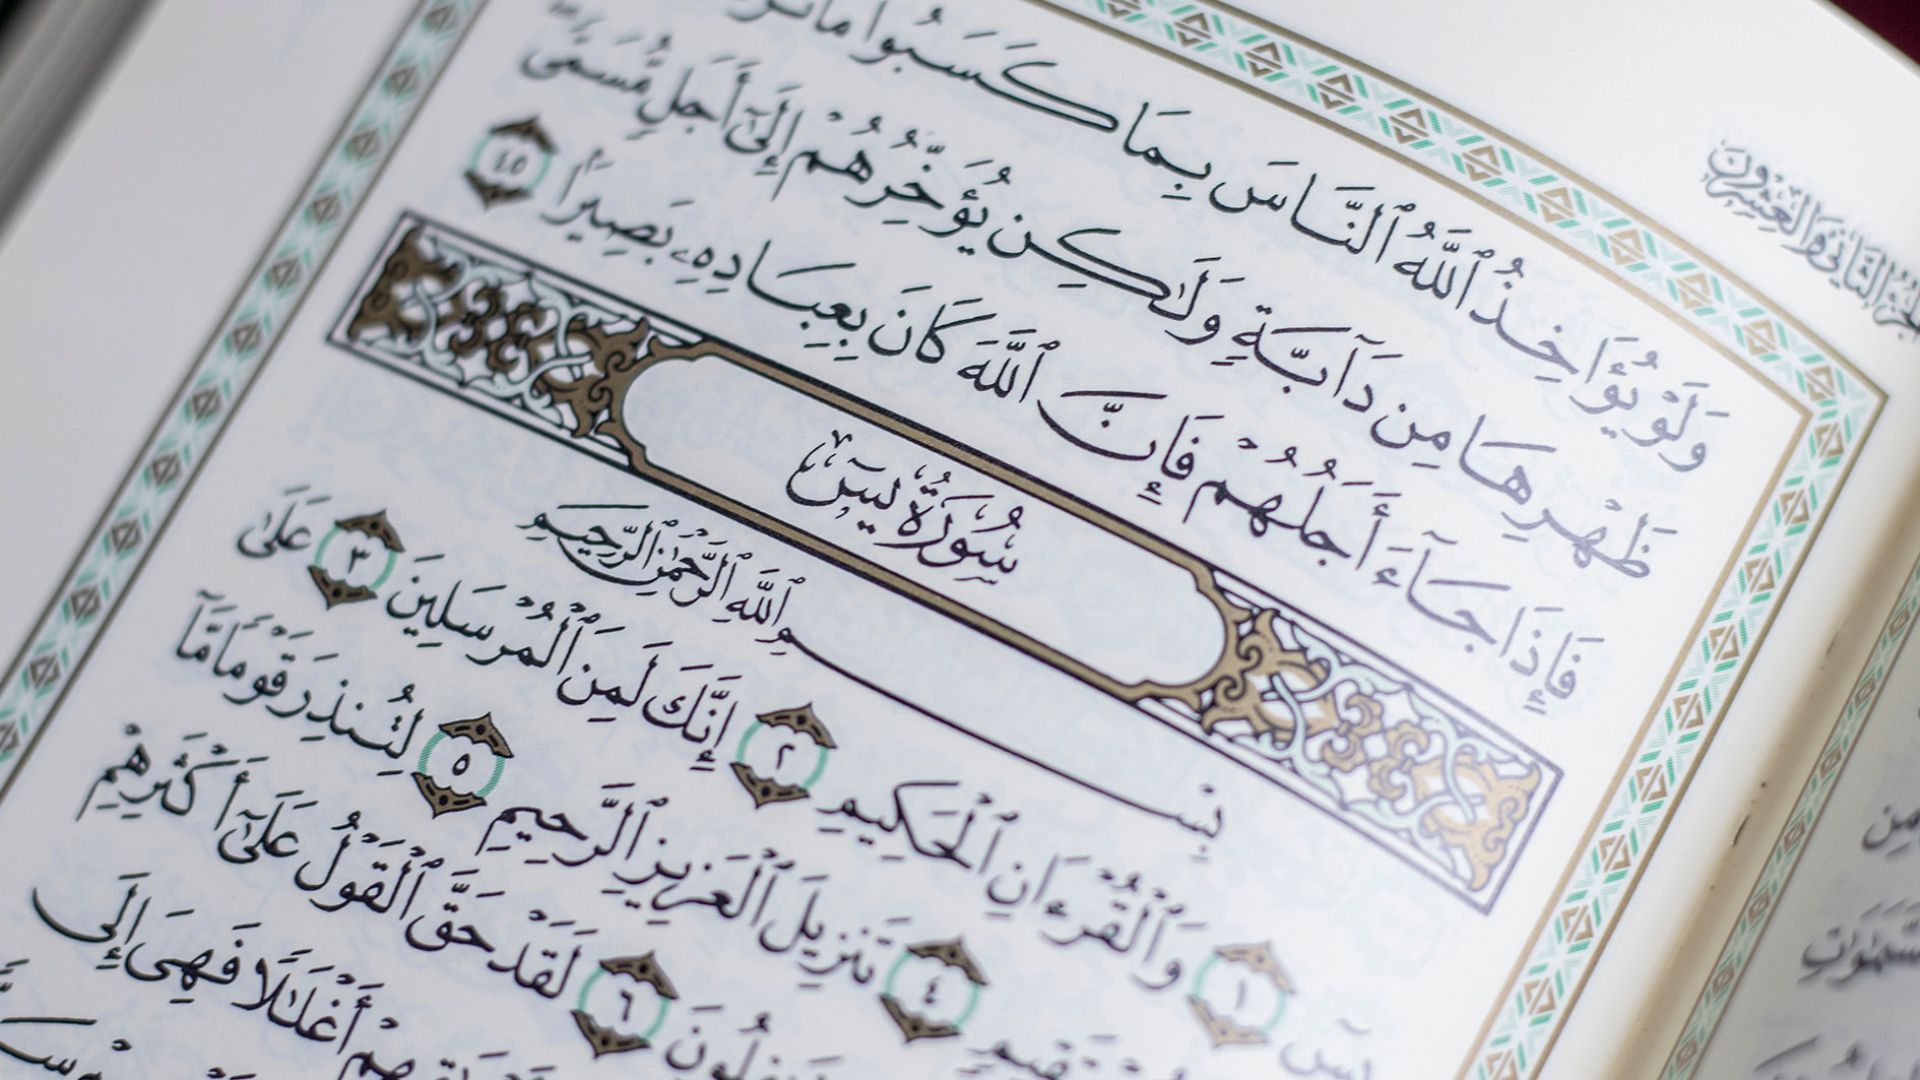 الجزء الثاني والعشرون
وَلَوْ يُؤَاخِذُ ٱللَّهُ ٱلنَّاسَ بِمَا كَسَبُوا۟ مَا
ظَهْرِهَا مِن دَآبَّةٍ وَلَـٰكِن يُؤَخِّرُهُمْ إِلَىٰٓ أَجَلٍ مُّسَمًّى
فَإِذَا جَآءَ أَجَلُهُمْ فَإِنَّ ٱللَّهَ كَانَ بِعِبَادِهِۦ بَصِيرًۢا ٤٥
سُورَةُ يسٓ
بِسْمِ ٱللَّهِ ٱلرَّحْمَـٰنِ ٱلرَّحِيمِ
يسٓ ١ وَٱلْقُرْءَانِ ٱلْحَكِيمِ ٢ إِنَّكَ لَمِنَ ٱلْمُرْسَلِينَ ٣ عَلَىٰ
٤ تَنزِيلَ ٱلْعَزِيزِ ٱلرَّحِيمِ ٥ لِتُنذِرَ قَوْمًا مَّآ
٦ لَقَدْ حَقَّ ٱلْقَوْلُ عَلَىٰٓ أَكْثَرِهِمْ
أَغْلَـٰلًا فَهِىَ إِلَى
مِن